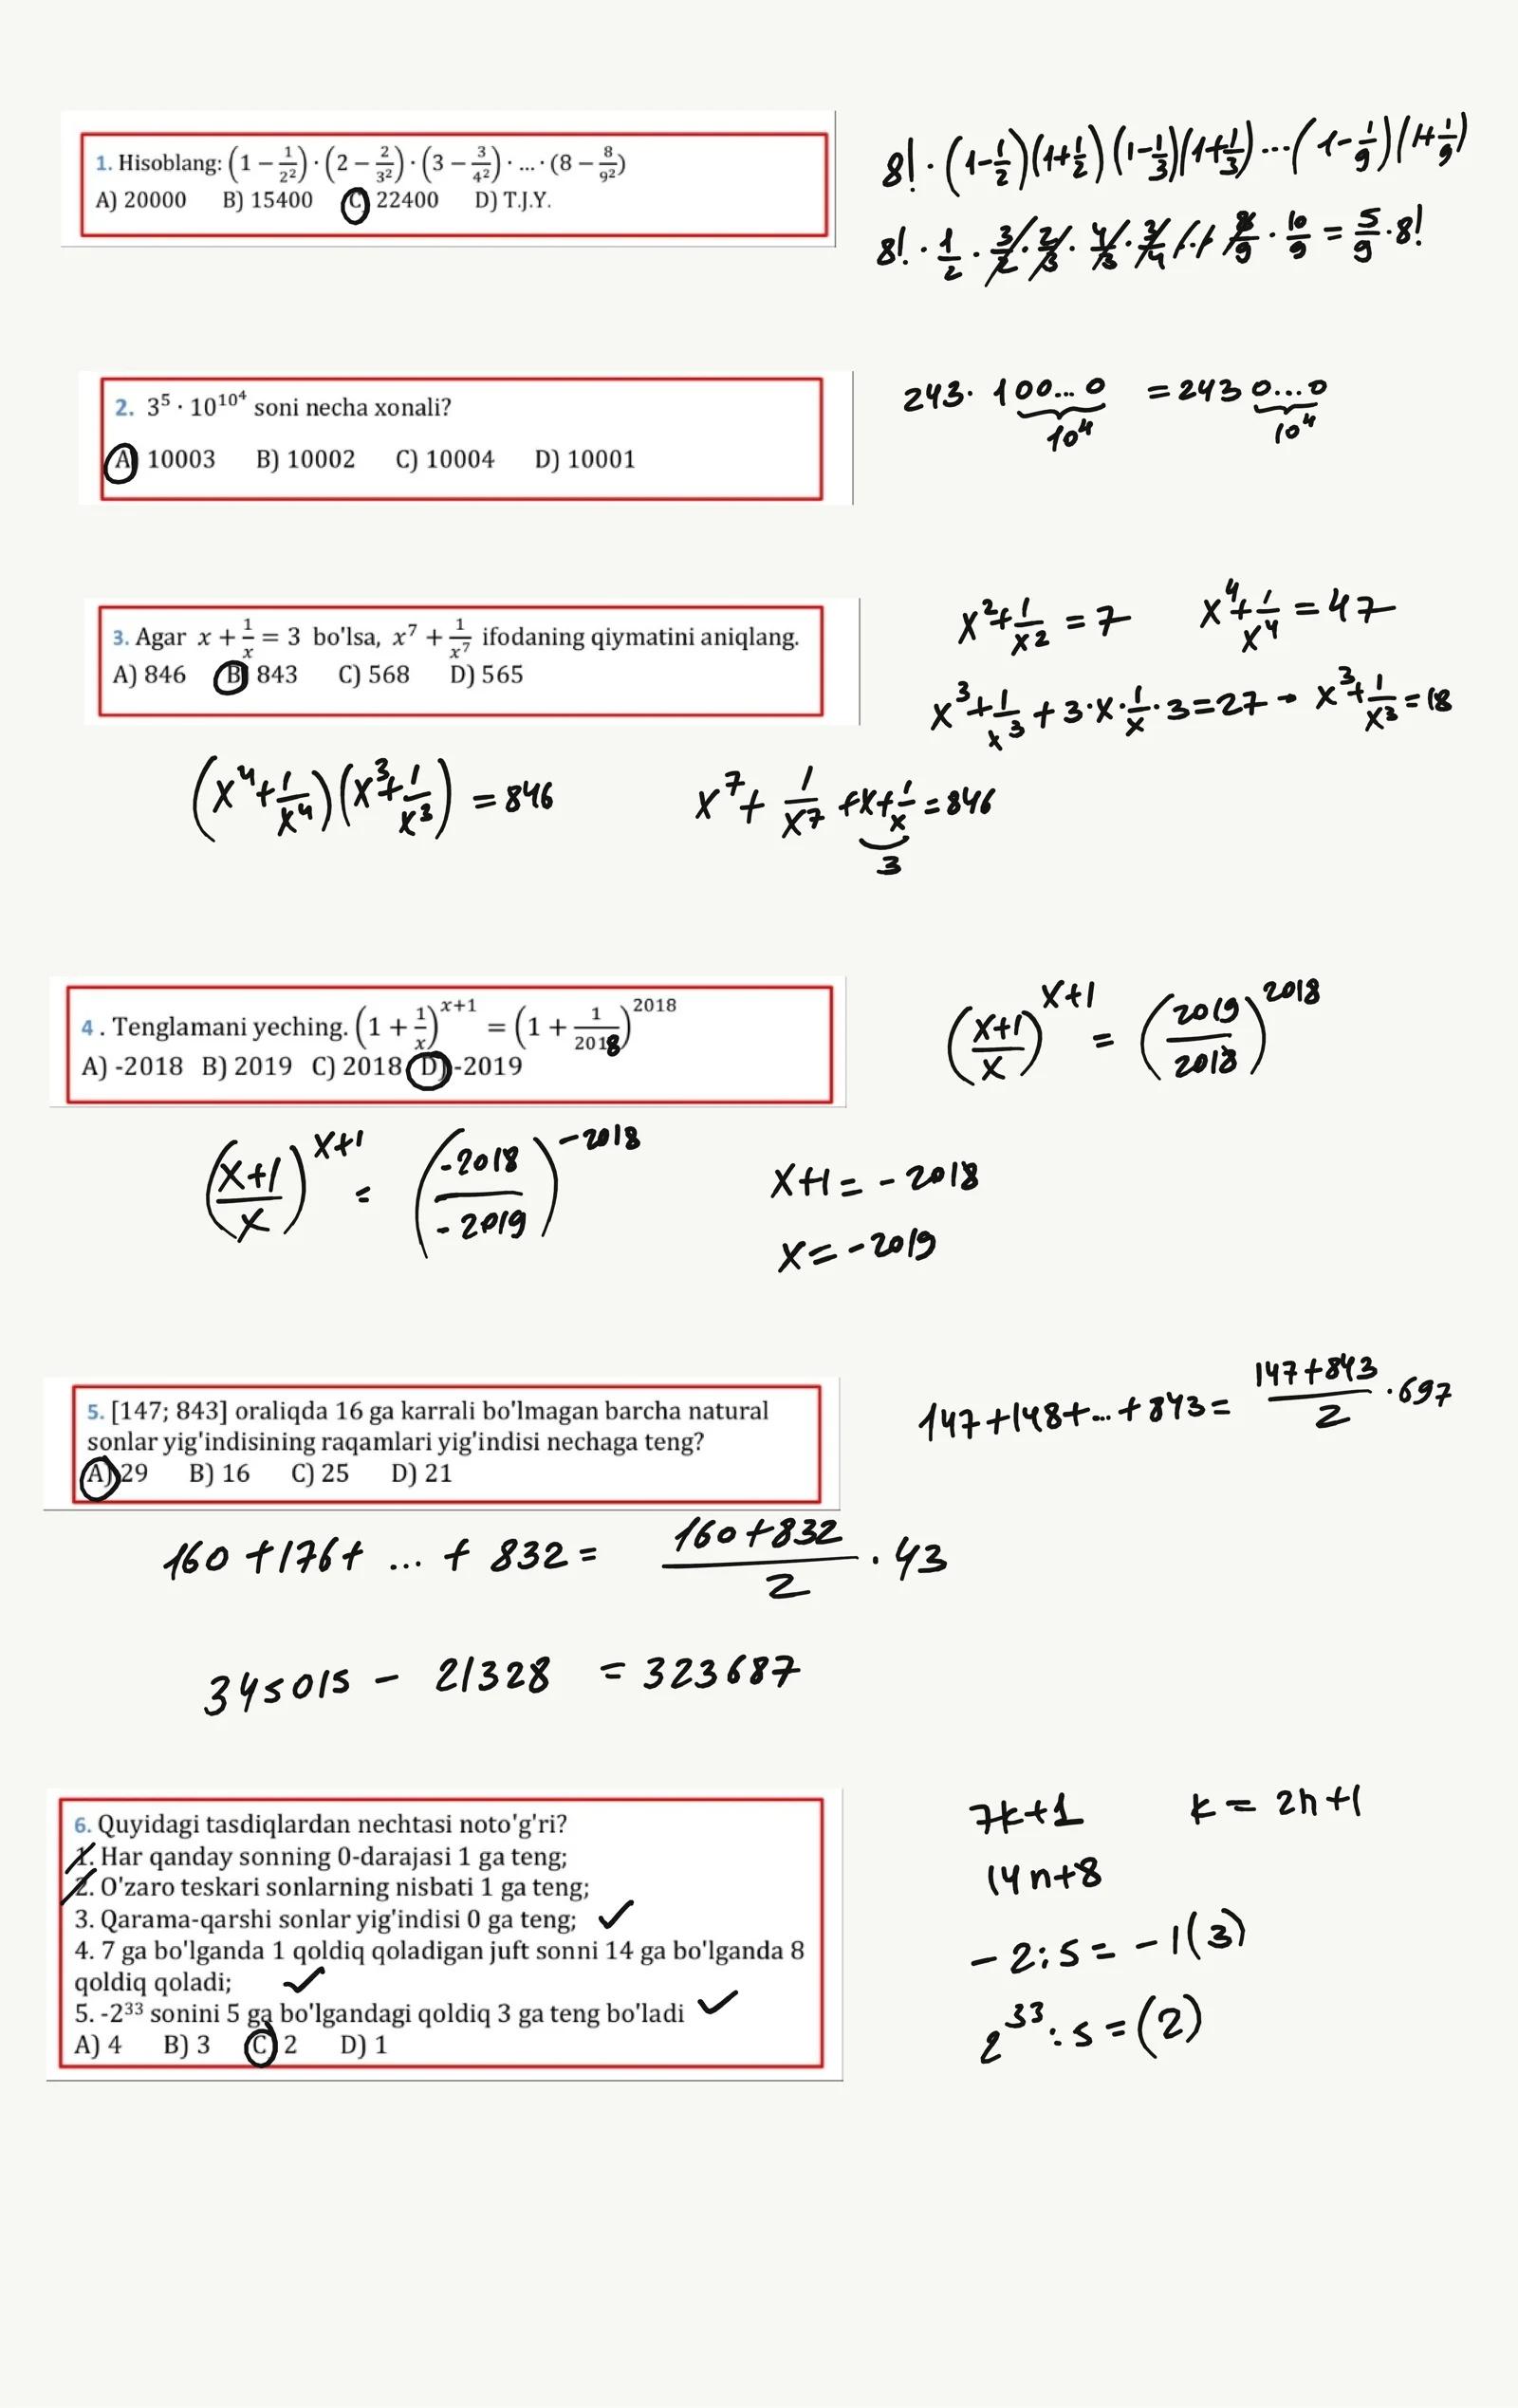 1. Hisoblang: (1 − 1/2²) · (2 − 2/3²) · (3 − 3/4²) · ... · (8 − 8/9²)
A) 20000 B) 15400 C) 22400 D) T.J.Y.
8! · (1-1/2)(1+1/2)(1-1/3)(1+1/3)...(1-1/9)(1+1/9)
8! · 1/2 · 3/2 · 2/3 · 4/3 · 3/4 · · · 8/9 · 10/9 = 5/9 · 8!
2. 3⁵ · 10^10⁴ soni necha xonali?
A) 10003 B) 10002 C) 10004 D) 10001
243 · 100...0 = 243 0...0
10⁴ 10⁴
3. Agar x + 1/x = 3 bo'lsa, x⁷ + 1/x⁷ ifodaning qiymatini aniqlang.
A) 846 B) 843 C) 568 D) 565
x² + 1/x² = 7 x⁴ + 1/x⁴ = 47
x³ + 1/x³ + 3·x·1/x·3 = 27 - x³ + 1/x³ = 18
(x⁴ + 1/x⁴)(x³ + 1/x³) = 846 x⁷ + 1/x⁷ + x + 1/x = 846
3
4 . Tenglamani yeching. (1 + 1/x)^(x+1) = (1 + 1/2018)^2018
A) -2018 B) 2019 C) 2018 D) -2019
((x+1)/x)^(x+1) = (2019/2018)^2018
((x+1)/x)^(x+1) = (-2018/-2019)^-2018 x+1 = -2018
x = -2019
5. [147; 843] oraliqda 16 ga karrali bo'lmagan barcha natural
sonlar yig'indisining raqamlari yig'indisi nechaga teng?
A) 29 B) 16 C) 25 D) 21
147+148+...+843 = (147+843)/2 · 697
160 + 176 + ... + 832 = (160+832)/2 · 43
345015 - 21328 = 323687
6. Quyidagi tasdiqlardan nechtasi noto'g'ri?
1. Har qanday sonning 0-darajasi 1 ga teng;
2. O'zaro teskari sonlarning nisbati 1 ga teng;
3. Qarama-qarshi sonlar yig'indisi 0 ga teng; ✓
4. 7 ga bo'lganda 1 qoldiq qoladigan juft sonni 14 ga bo'lganda 8
qoldiq qoladi; ✓
5. -2³³ sonini 5 ga bo'lgandagi qoldiq 3 ga teng bo'ladi ✓
A) 4 B) 3 C) 2 D) 1
7k+1 k = 2n+1
14n+8
-2:5 = -1(3)
2³³:5 = (2)